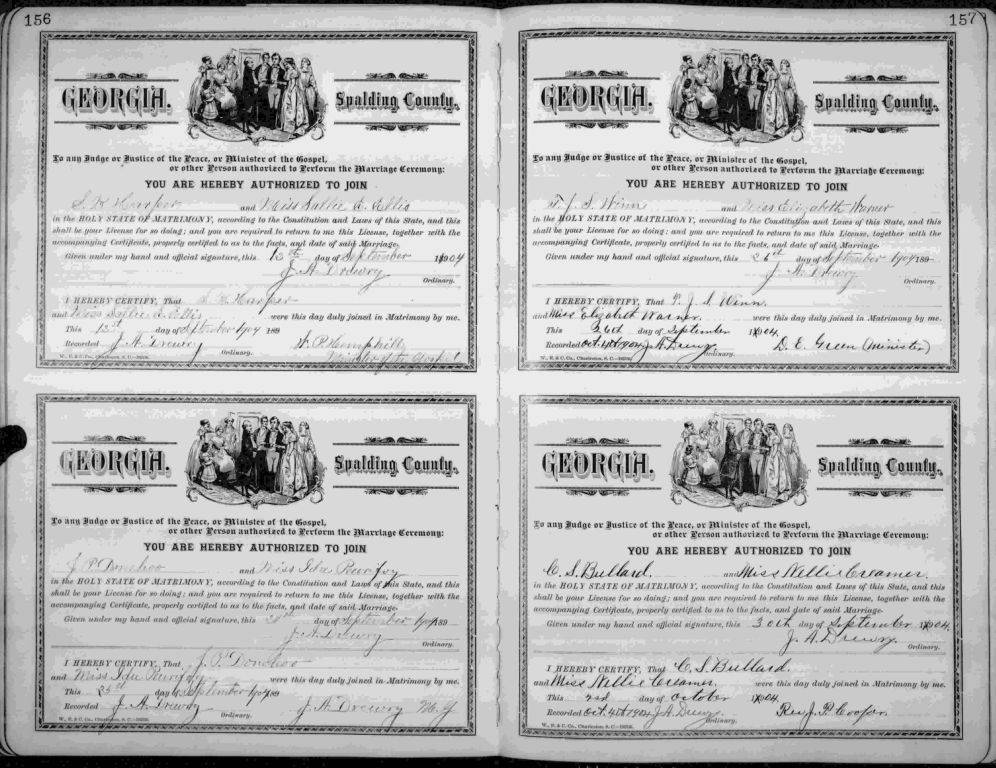 156
GEORGIA. Spalding County.
To any Judge or Justice of the Peace, or Minister of the Gospel,
or other Person authorized to Perform the Marriage Ceremony:
YOU ARE HEREBY AUTHORIZED TO JOIN
Harper and Miss Sallie Ellis
in the HOLY STATE OF MATRIMONY, according to the Constitution and Laws of this State, and this
shall be your License for so doing; and you are required to return to me this License, together with the
accompanying Certificate, properly certified to as to the facts, and date of said Marriage.
Given under my hand and official signature, this day of September 1904
J. A. Drewry
Ordinary.
I HEREBY CERTIFY, That Harper
and Miss Sallie Ellis were this day duly joined in Matrimony by me.
This day of September 1904 189
Recorded J. A. Drewry W. P. Hemphill
Ordinary. Minister of the Gospel
GEORGIA. Spalding County.
To any Judge or Justice of the Peace, or Minister of the Gospel,
or other Person authorized to Perform the Marriage Ceremony:
YOU ARE HEREBY AUTHORIZED TO JOIN
J. P. Donehoo and Miss Ida
in the HOLY STATE OF MATRIMONY, according to the Constitution and Laws of this State, and this
shall be your License for so doing; and you are required to return to me this License, together with the
accompanying Certificate, properly certified to as to the facts, and date of said Marriage.
Given under my hand and official signature, this day of September 1904 189
J. A. Drewry
Ordinary.
I HEREBY CERTIFY, That J. P. Donehoo
and Miss Ida were this day duly joined in Matrimony by me.
This 25th day of September 1904 189
Recorded J. A. Drewry J. A. Drewry
Ordinary.
157
GEORGIA. Spalding County.
To any Judge or Justice of the Peace, or Minister of the Gospel,
or other Person authorized to Perform the Marriage Ceremony:
YOU ARE HEREBY AUTHORIZED TO JOIN
J. S. Winn and Miss Elizabeth Warner
in the HOLY STATE OF MATRIMONY, according to the Constitution and Laws of this State, and this
shall be your License for so doing; and you are required to return to me this License, together with the
accompanying Certificate, properly certified to as to the facts, and date of said Marriage.
Given under my hand and official signature, this 26th day of September 1904 189
J. A. Drewry
Ordinary.
I HEREBY CERTIFY, That J. S. Winn
and Miss Elizabeth Warner were this day duly joined in Matrimony by me.
This 26th day of September 1904.
Recorded Oct. 4th 1904 J. A. Drewry D. E. Green (Minister)
Ordinary.
GEORGIA. Spalding County.
To any Judge or Justice of the Peace, or Minister of the Gospel,
or other Person authorized to Perform the Marriage Ceremony:
YOU ARE HEREBY AUTHORIZED TO JOIN
C. S. Bullard. and Miss Nellie Creamer.
in the HOLY STATE OF MATRIMONY, according to the Constitution and Laws of this State, and this
shall be your License for so doing; and you are required to return to me this License, together with the
accompanying Certificate, properly certified to as to the facts, and date of said Marriage.
Given under my hand and official signature, this 30th day of September 1904.
J. A. Drewry.
Ordinary.
I HEREBY CERTIFY, That C. S. Bullard.
and Miss Nellie Creamer. were this day duly joined in Matrimony by me.
This 2nd day of October 1904.
Recorded Oct. 4th 1904 J. A. Drewry Rev J. P. Cooper.
Ordinary.